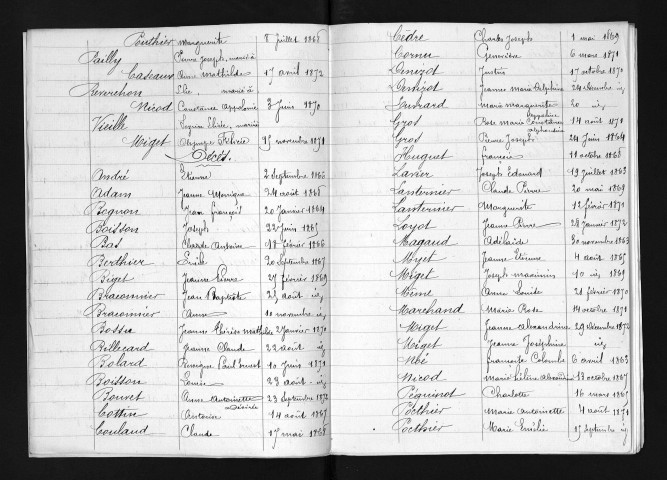 Pouthier Marguerite 8 juillet 1868
Pailly Pierre Joseph, marié à
Caseaux Anne Mathilde 17 avril 1872
Reverchon Elie, marié à
Nicod Constance Appolonie 3 juin 1870
Vieille Eugène Elisée, marié à
Miget Olympe Félicie 15 novembre 1871
Décès.
André Etienne 2 septembre 1866
Adam Jeanne Monique 24 août 1868
Bognon Jean françois 20 janvier 1864
Boisson Joseph 22 juin 1867
Bas Claude Antoine 18 février 1866
Berthier Emile 20 septembre 1867
Biget Jeanne Pierre 27 février 1869
Braconnier Jean Baptiste 25 août id
Braconnier Anne 10 novembre id
Bossu Jeanne Thérèse Mathilde 2 janvier 1870
Billecard Jeanne Claude 22 août id
Bolard Paul Ernest 10 juin 1871
Boisson Louise 23 août id
Bouvet Anne Antoinette Désirée 23 septembre 1872
Cottin Antoine 14 août 1867
Coulaud Claude 17 mai 1868
Cèdre Charles Joseph 1 mai 1869
Cornu Geneviève 6 mars 1871
Denizot Justin 17 octobre 1870
Denizot Jeanne Marie Delphine 24 décembre id
Marie Marguerite 20 id
Gros Rose Marie Constance 14 août 1871
Gros Pierre Joseph 24 juin 1864
Huguet François 11 octobre 1868
Lavier Joseph Edouard 19 juillet 1863
Lanternier Claude Pierre 20 mai 1869
Lanternier Marguerite 12 février 1871
Loyot Jeanne Pierre 28 janvier 1872
Magaud Adélaïde 30 novembre 1863
Myet Jeanne Etienne 4 août 1867
Miget Joseph Maximin 10 id 1869
Même Anne Louise 21 février 1870
Marchand Marie Rose 14 octobre 1871
Miget Jeanne Alexandrine 29 décembre 1872
Miget Jeanne Joséphine id
Françoise Colombe 6 avril 1863
Nicod Marie hélène Alexandrine 13 octobre 1867
Péquinot Charlotte 16 mars 1867
Pocthier Marie Antoinette 4 août 1871
Pocthier Marie Emélie 25 septembre id